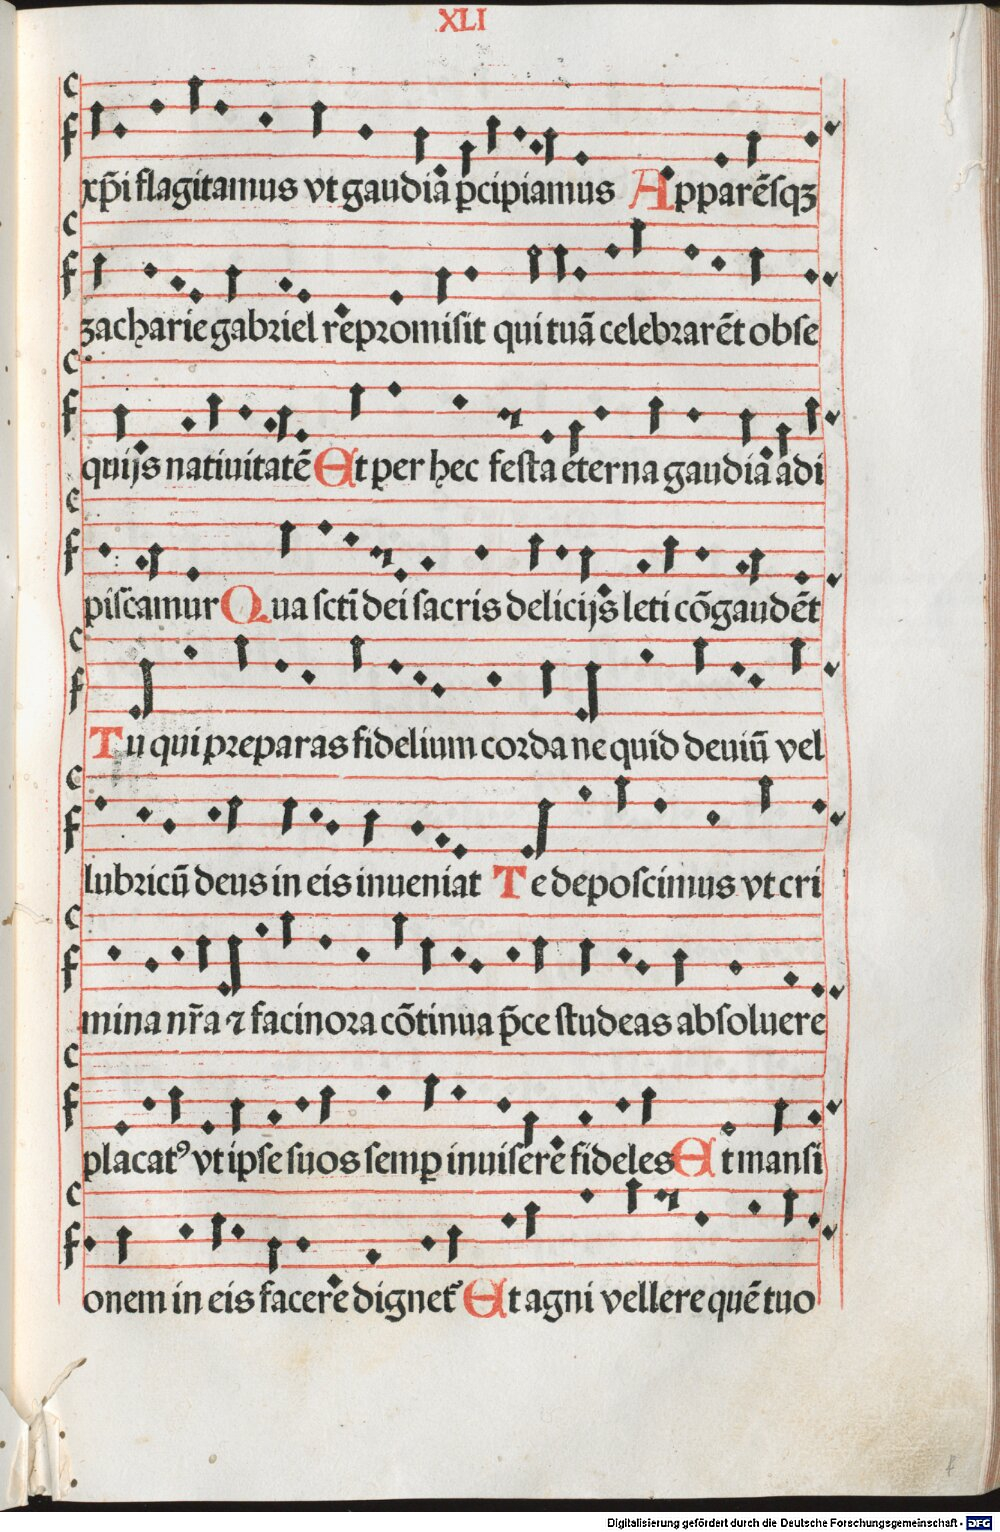 XLI
xp̄i flagitamus vt gaudia p̲cipiamus Apparēsqꝫ
zacharie gabriel repromisit qui tuā celebrarēt obse
quijs natiuitatē Et per hec festa eterna gaudia adi
piscamur Qua sctī dei sacris delicijs leti cōgaudēt
Tu qui preparas fidelium corda ne quid deuiū vel
lubricū deus in eis inueniat Te deposcimus vt cri
mina nr̄a ⁊ facinora cōtinua p̄ce studeas absoluere
placatꝰ vt ipse suos semꝑ inuisere fideles Et mansi
onem in eis facere dignet᷑ Et agni vellere quē tuo
Digitalisierung gefördert durch die Deutsche Forschungsgemeinschaft - DFG